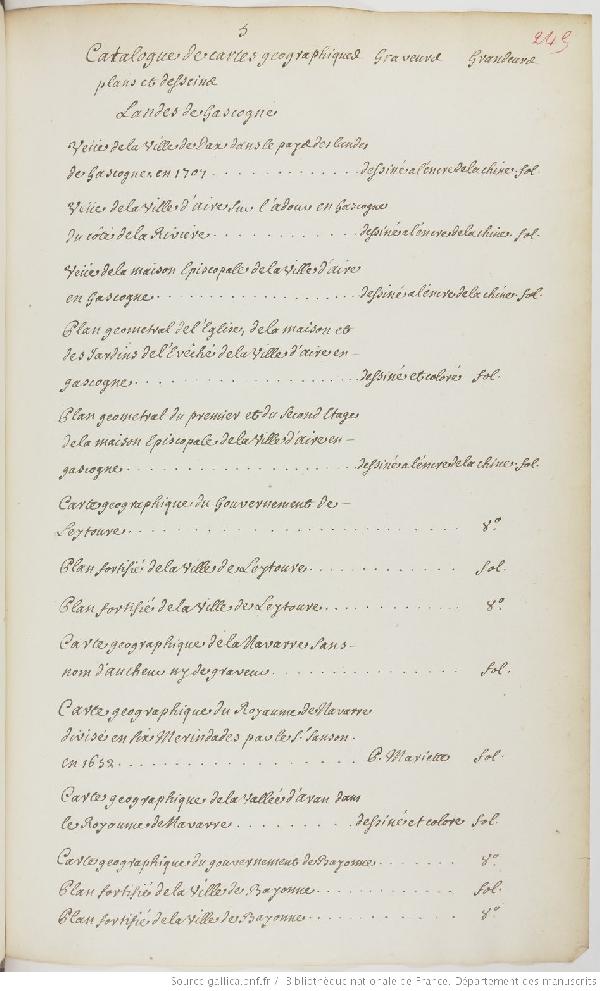 5
249
Catalogue de cartes geographiques Graveurs Grandeurs
plans et desseins
Landes de Gascogne
Veüe de la Ville de Dax dans le pays des landes
de Gascogne en 1701 . . . . . . . . . . . . dessiné a l'encre de la chine fol.
Veüe de la Ville d'aire sur l'adour en Gascogne
du côté de la Riviere . . . . . . . . . . . . dessiné a l'encre de la chine fol.
Veüe de la maison Episcopale de la Ville d'aire
en Gascogne . . . . . . . . . . . . . . . . dessiné a l'encre de la chine fol.
Plan geometral de l'Eglise, de la maison et
des Jardins de l'Evêché de la Ville d'aire en-
gascogne . . . . . . . . . . . . . . . . . . dessiné et coloré fol.
Plan geometral du premier et du Second Etage
de la maison Episcopale de la Ville d'aire en-
gascogne . . . . . . . . . . . . . . . . . . dessiné a l'encre de la chine fol.
Carte geographique du Gouvernement de-
Leytoure . . . . . . . . . . . . . . . . . . . . . . . . 8°
Plan fortifié de la Ville de Leytoure . . . . . . . . . . fol.
Plan fortifié de la Ville de Leytoure . . . . . . . . . . 8°
Carte geographique de la Navarre sans-
nom d'autheur ny de graveur . . . . . . . . . . . . . fol.
Carte geographique du Royaume de Navarre
divisé en six Merindades par le Sr. Sanson.
en 1652 . . . . . . . . . . . . . . . . . . P. Mariette fol.
Carte geographique de la Vallée d'Aran dans
le Royaume de Navarre . . . . . . . . . . dessiné et coloré fol.
Carte geographique du gouvernement de Bayonne . . . . . . 8°
Plan fortifié de la Ville de Bayonne . . . . . . . . . . fol.
Plan fortifié de la Ville de Bayonne . . . . . . . . . . 8°
Source gallica.bnf.fr / Bibliothèque nationale de France. Département des manuscrits